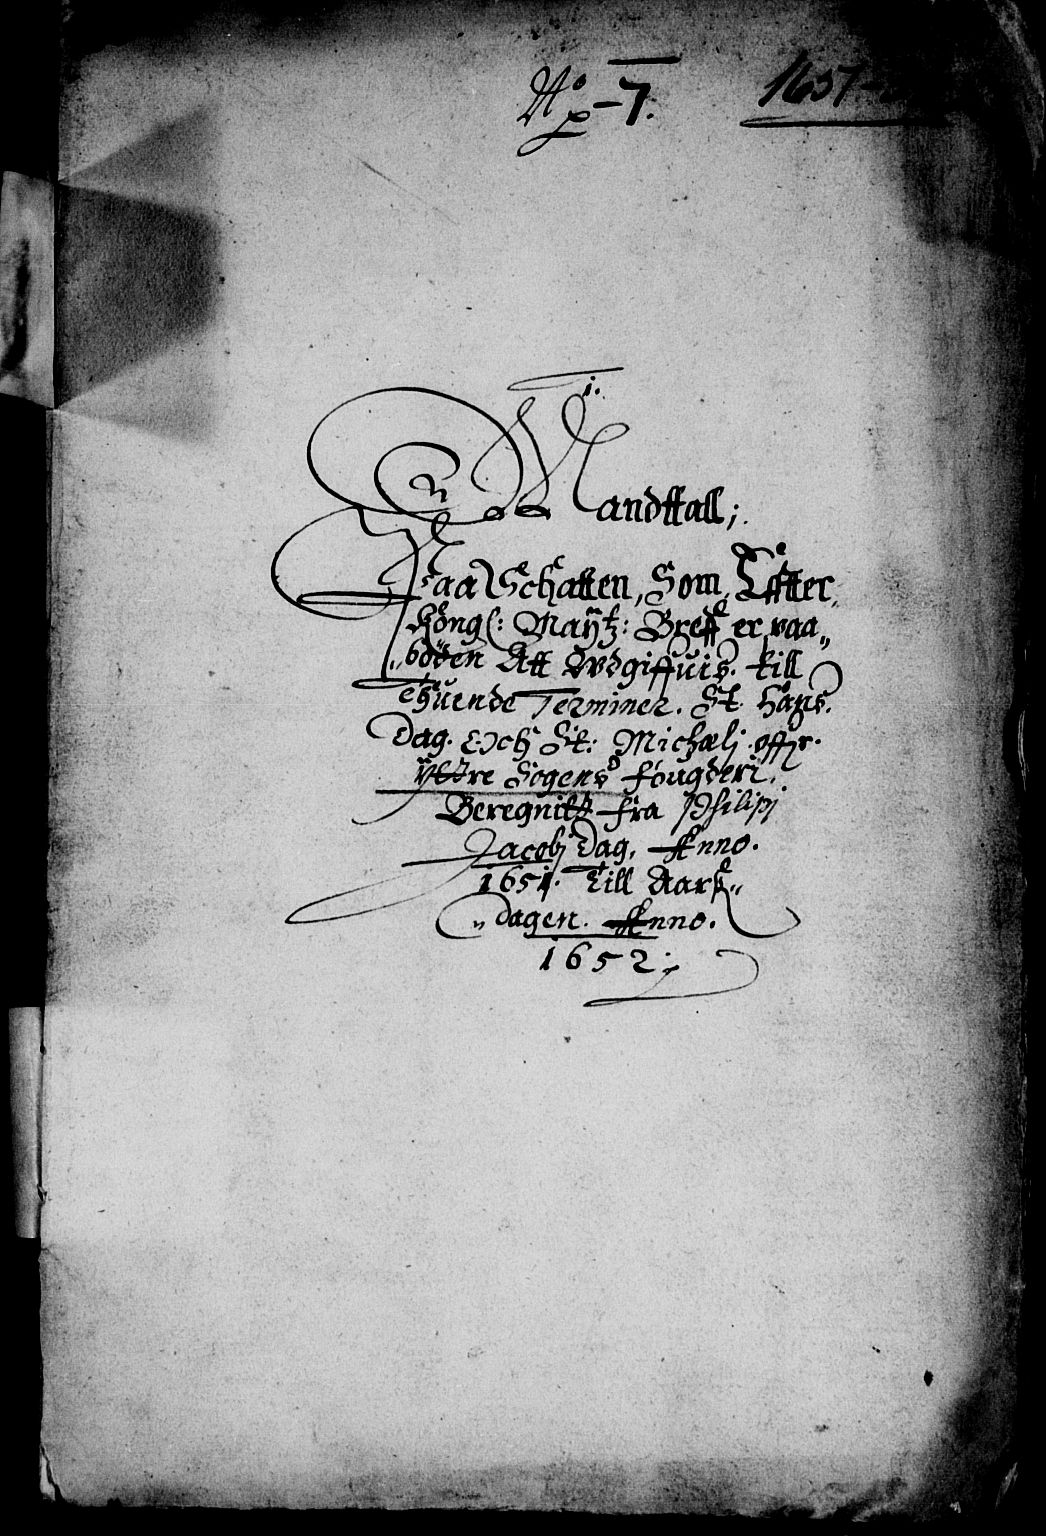 No 7.
1651-
1.
En Mandttall;
Paa Schatten, Som Effter
Köngl: Maÿtz: Breff er paa„
„böden Att Wdgiffuis. till
thuende Terminer. St. Hans.
Dag. Och St: Michælj. offr.
ÿttre Sogens fougderi.
Beregnitt fra Philipj
Jacobj Dag, Anno.
1651. Till Aarß„
„dagen. Anno.
1652.